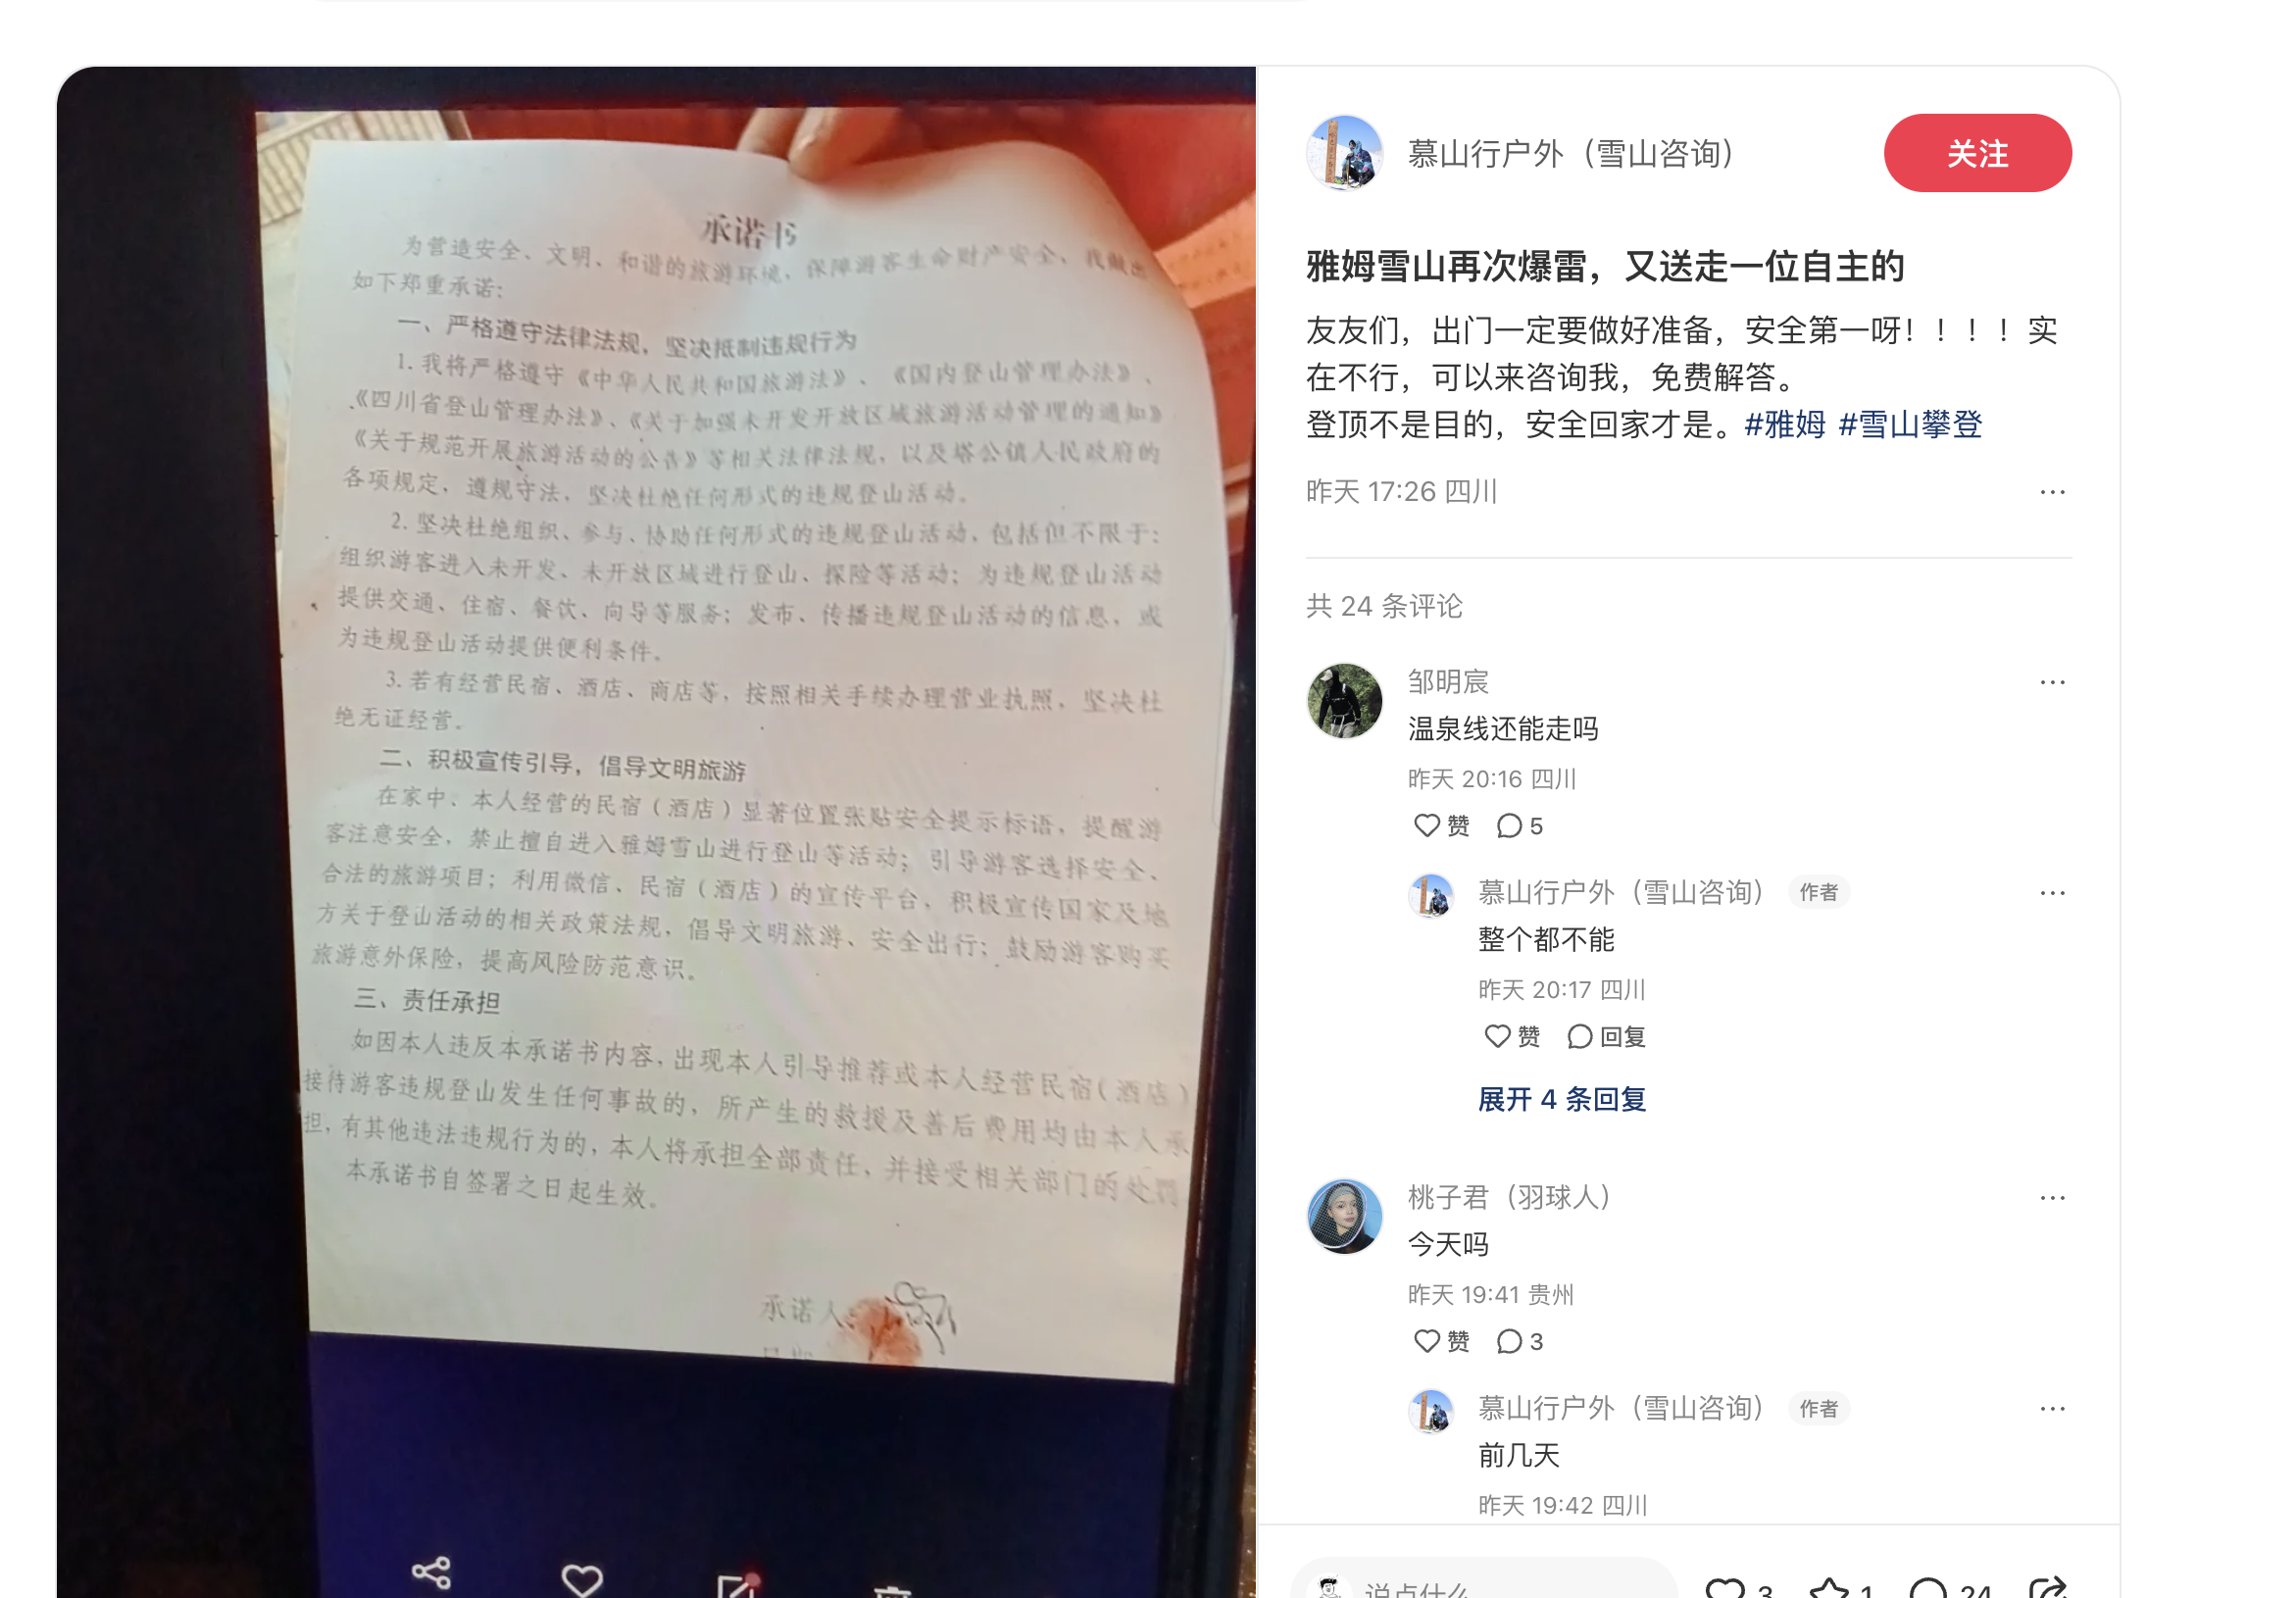 承诺书
为营造安全、文明、和谐的旅游环境，保障游客生命财产安全，我做出
如下郑重承诺：
一、严格遵守法律法规，坚决抵制违规行为
1.我将严格遵守《中华人民共和国旅游法》、《国内登山管理办法》、
《四川省登山管理办法》、《关于加强未开发开放区域旅游活动管理的通知》
《关于规范开展旅游活动的公告》等相关法律法规，以及塔公镇人民政府的
各项规定，遵规守法，坚决杜绝任何形式的违规登山活动。
2.坚决杜绝组织、参与、协助任何形式的违规登山活动，包括但不限于：
组织游客进入未开发、未开放区域进行登山、探险等活动；为违规登山活动
提供交通、住宿、餐饮、向导等服务；发布、传播违规登山活动的信息，或
为违规登山活动提供便利条件。
3.若有经营民宿、酒店、商店等，按照相关手续办理营业执照，坚决杜
绝无证经营。
二、积极宣传引导，倡导文明旅游
在家中、本人经营的民宿（酒店）显著位置张贴安全提示标语，提醒游
客注意安全，禁止擅自进入雅姆雪山进行登山等活动；引导游客选择安全、
合法的旅游项目；利用微信、民宿（酒店）的宣传平台，积极宣传国家及地
方关于登山活动的相关政策法规，倡导文明旅游、安全出行；鼓励游客购买
旅游意外保险，提高风险防范意识。
三、责任承担
如因本人违反本承诺书内容，出现本人引导推荐或本人经营民宿（酒店）
接待游客违规登山发生任何事故的，所产生的救援及善后费用均由本人承
担，有其他违法违规行为的，本人将承担全部责任，并接受相关部门的处罚
本承诺书自签署之日起生效。
承诺人：
慕山行户外（雪山咨询）
关注
雅姆雪山再次爆雷，又送走一位自主的
友友们，出门一定要做好准备，安全第一呀！！！！实
在不行，可以来咨询我，免费解答。
登顶不是目的，安全回家才是。#雅姆 #雪山攀登
昨天 17:26 四川
共 24 条评论
邹明宸
温泉线还能走吗
昨天 20:16 四川
赞 5
慕山行户外（雪山咨询） 作者
整个都不能
昨天 20:17 四川
赞 回复
展开 4 条回复
桃子君（羽球人）
今天吗
昨天 19:41 贵州
赞 3
慕山行户外（雪山咨询） 作者
前几天
昨天 19:42 四川
说点什么 3 1 24